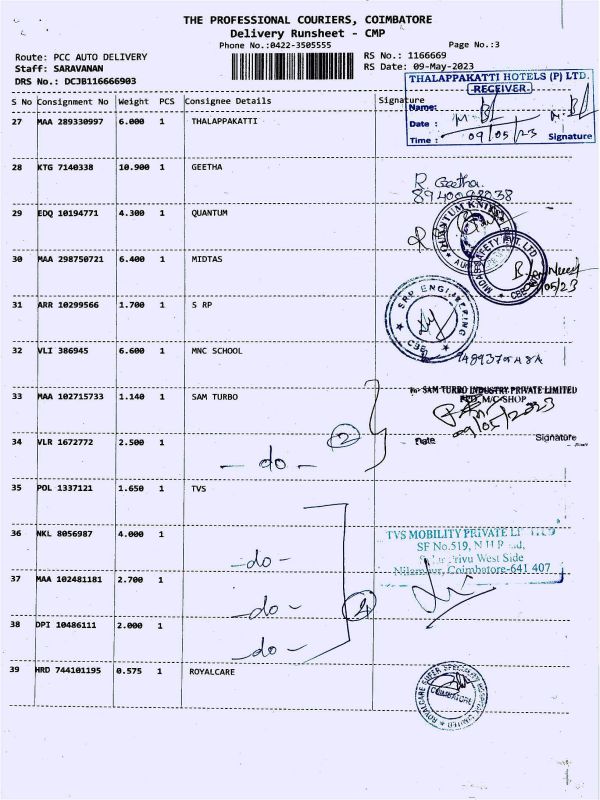 THE PROFESSIONAL COURIERS, COIMBATORE
Delivery Runsheet - CMP
Phone No.:0422-3505555
Page No.:3
Route: PCC AUTO DELIVERY
RS No.: 1166669
Staff: SARAVANAN
RS Date: 09-May-2023
DRS No.: DCJB116666903
THALAPPAKATTI HOTELS (P) LTD.
RECEIVER
Name:
Date :
Time : 09/05/23 Signature
S No Consignment No Weight PCS Consignee Details Signature
27 MAA 289330997 6.000 1 THALAPPAKATTI
28 KTG 7140338 10.900 1 GEETHA
R. Geetha.
8940098038
29 EDQ 10194771 4.300 1 QUANTUM
30 MAA 298750721 6.400 1 MIDTAS
31 ARR 10299566 1.700 1 S RP
SRP ENGINEERING
CBE
32 VLI 386945 6.600 1 MNC SCHOOL
33 MAA 102715733 1.140 1 SAM TURBO
For SAM TURBO INDUSTRY PRIVATE LIMITED
M/C SHOP
09/05/2023
Date Signature
34 VLR 1672772 2.500 1
- do -
2
35 POL 1337121 1.650 1 TVS
36 NKL 8056987 4.000 1
-do-
TVS MOBILITY PRIVATE
SF No.519,
West Side
Coimbatore-641 407
37 MAA 102481181 2.700 1
-do-
4
38 DPI 10486111 2.000 1
-do-
39 HRD 744101195 0.575 1 ROYALCARE
ROYALCARE SUPER SPECIALITY HOSPITAL LIMITED
COIMBATORE